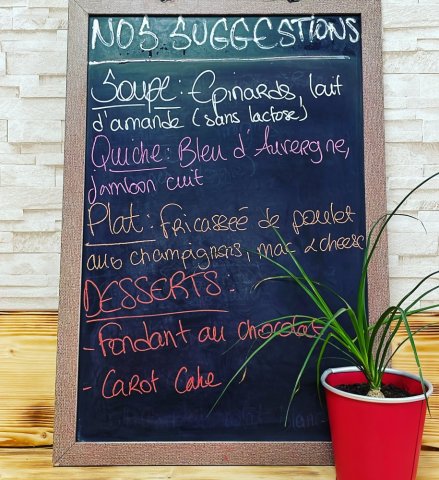 NOS SUGGESTIONS
Soupe : Epinards, lait
d'amande (sans lactose)
Quiche : Bleu d'Auvergne,
jambon cuit
Plat : fricasseé de poulet
aux champignons, mac & cheese
DESSERTS :
- Fondant au chocolat
- Carot Cake